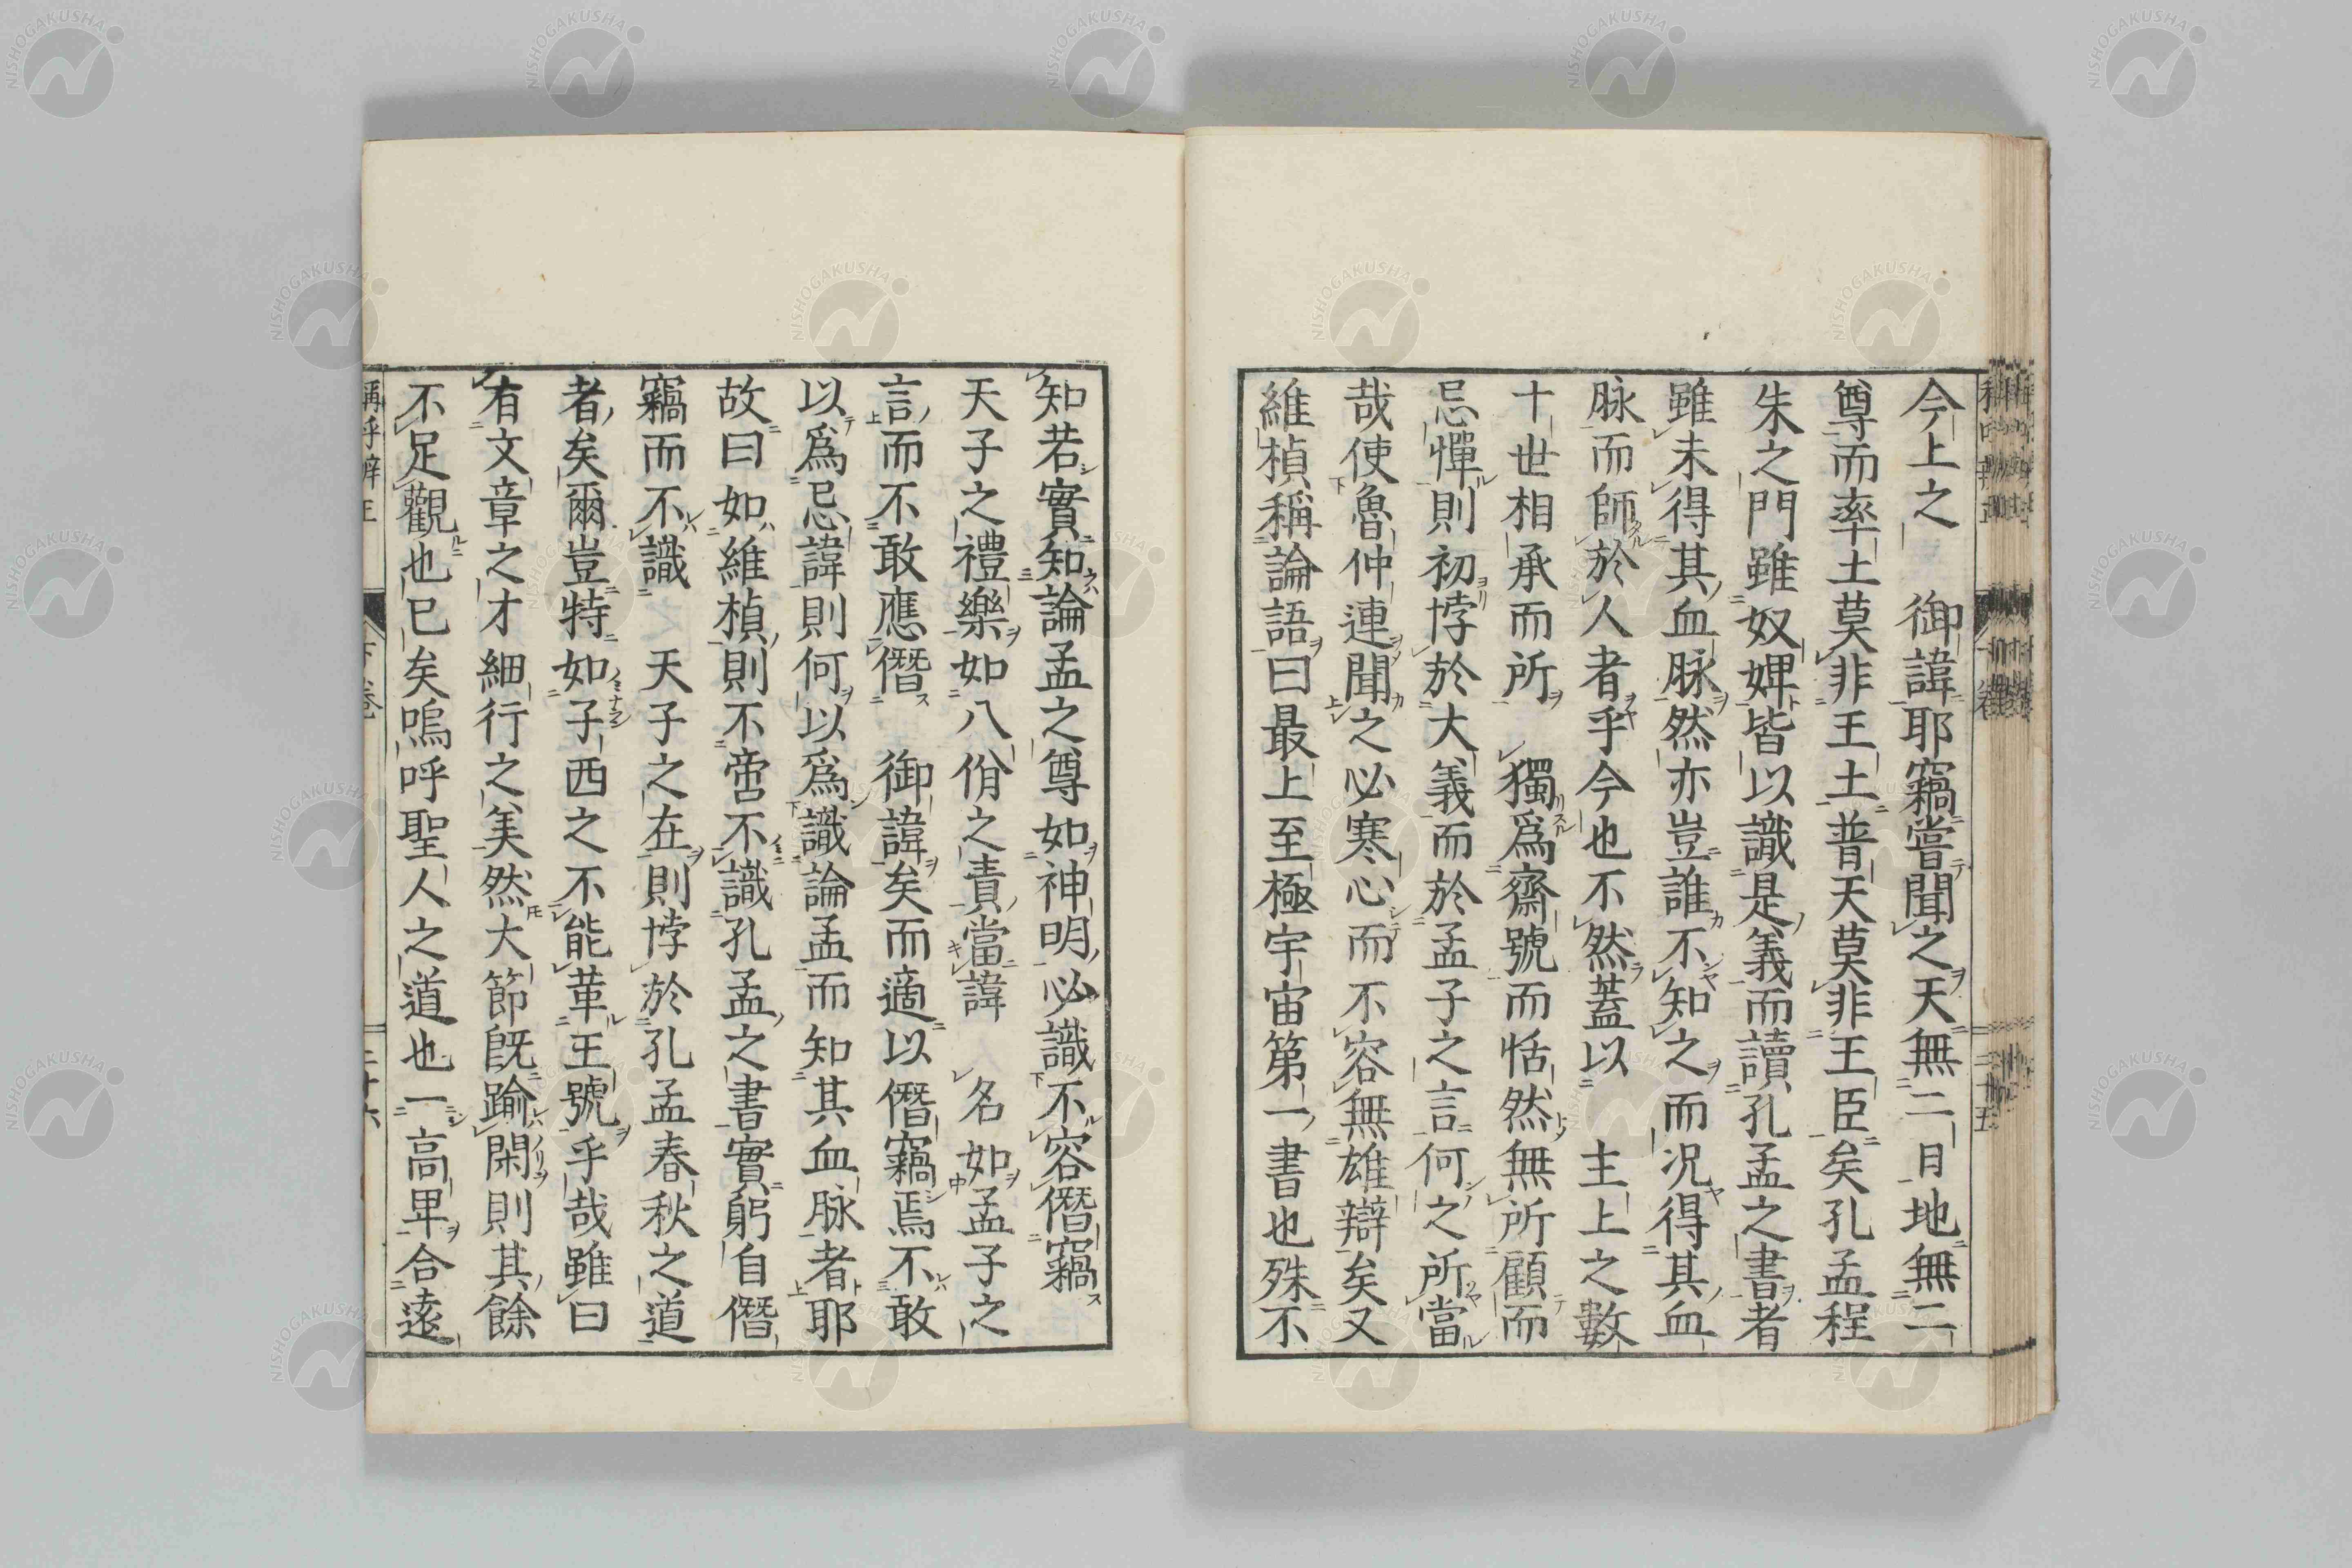 今上之　御諱耶竊嘗聞之天無二日地無二
尊而率土莫非王土普天莫非王臣矣孔孟程
朱之門雖奴婢皆以識是義而讀孔孟之書者
雖未得其血脉然亦豈誰不知之而况得其血
脉而師於人者乎今也不然蓋以　主上之數
十世相承而所　獨爲齋號而恬然無所顧而
忌憚則初悖於大義而於孟子之言何之所當
哉使魯仲連聞之必寒心而不容無雄辯矣又
維楨稱論語曰最上至極宇宙第一書也殊不
知若實知論孟之尊如神明必識不容僭竊
天子之禮樂如八佾之責當諱　名如孟子之
言而不敢應僭　御諱矣而適以僭竊焉不敢
以爲忌諱則何以爲識論孟而知其血脉者耶
故曰如維楨則不啻不識孔孟之書實躬自僭
竊而不識　天子之在則悖於孔孟春秋之道
者矣爾豈特如子西之不能革王號乎哉雖曰
有文章之才細行之美然大節既踰閑則其餘
不足觀也已矣嗚呼聖人之道也一高卑合遠
稱呼辨正
下卷
二十六
NISHOGAKUSHA